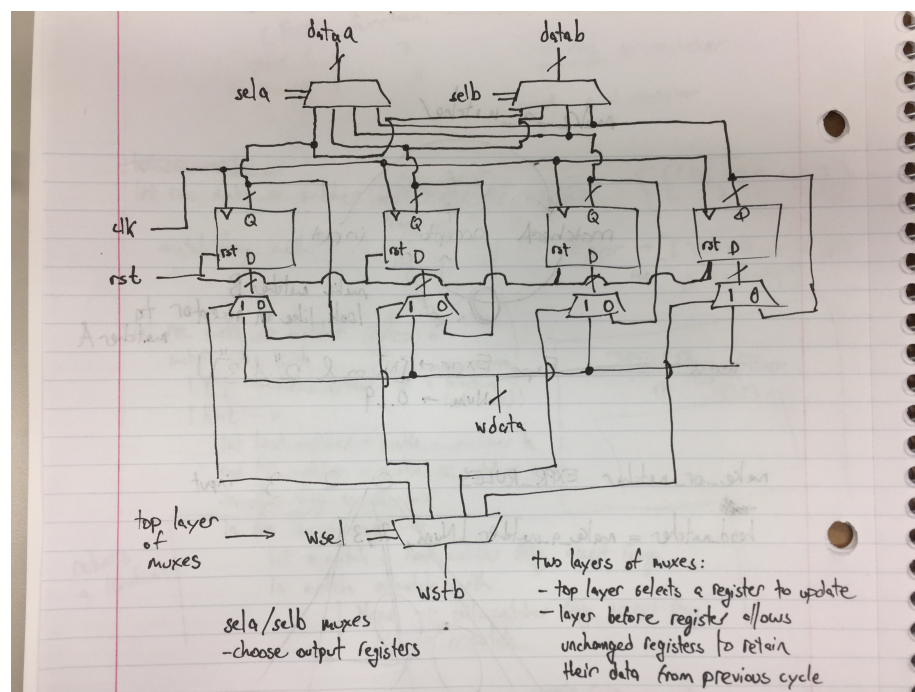 data a
data b
sela
selb
clk
Q
Q
Q
Q
rst
rst D
rst D
rst D
rst D
1 0
1 0
1 0
1 0
wdata
top layer
of
muxes
wsel
wstb
sela/selb muxes
-choose output registers
two layers of muxes:
- top layer selects a register to update
- layer before register allows
unchanged registers to retain
their data from previous cycle